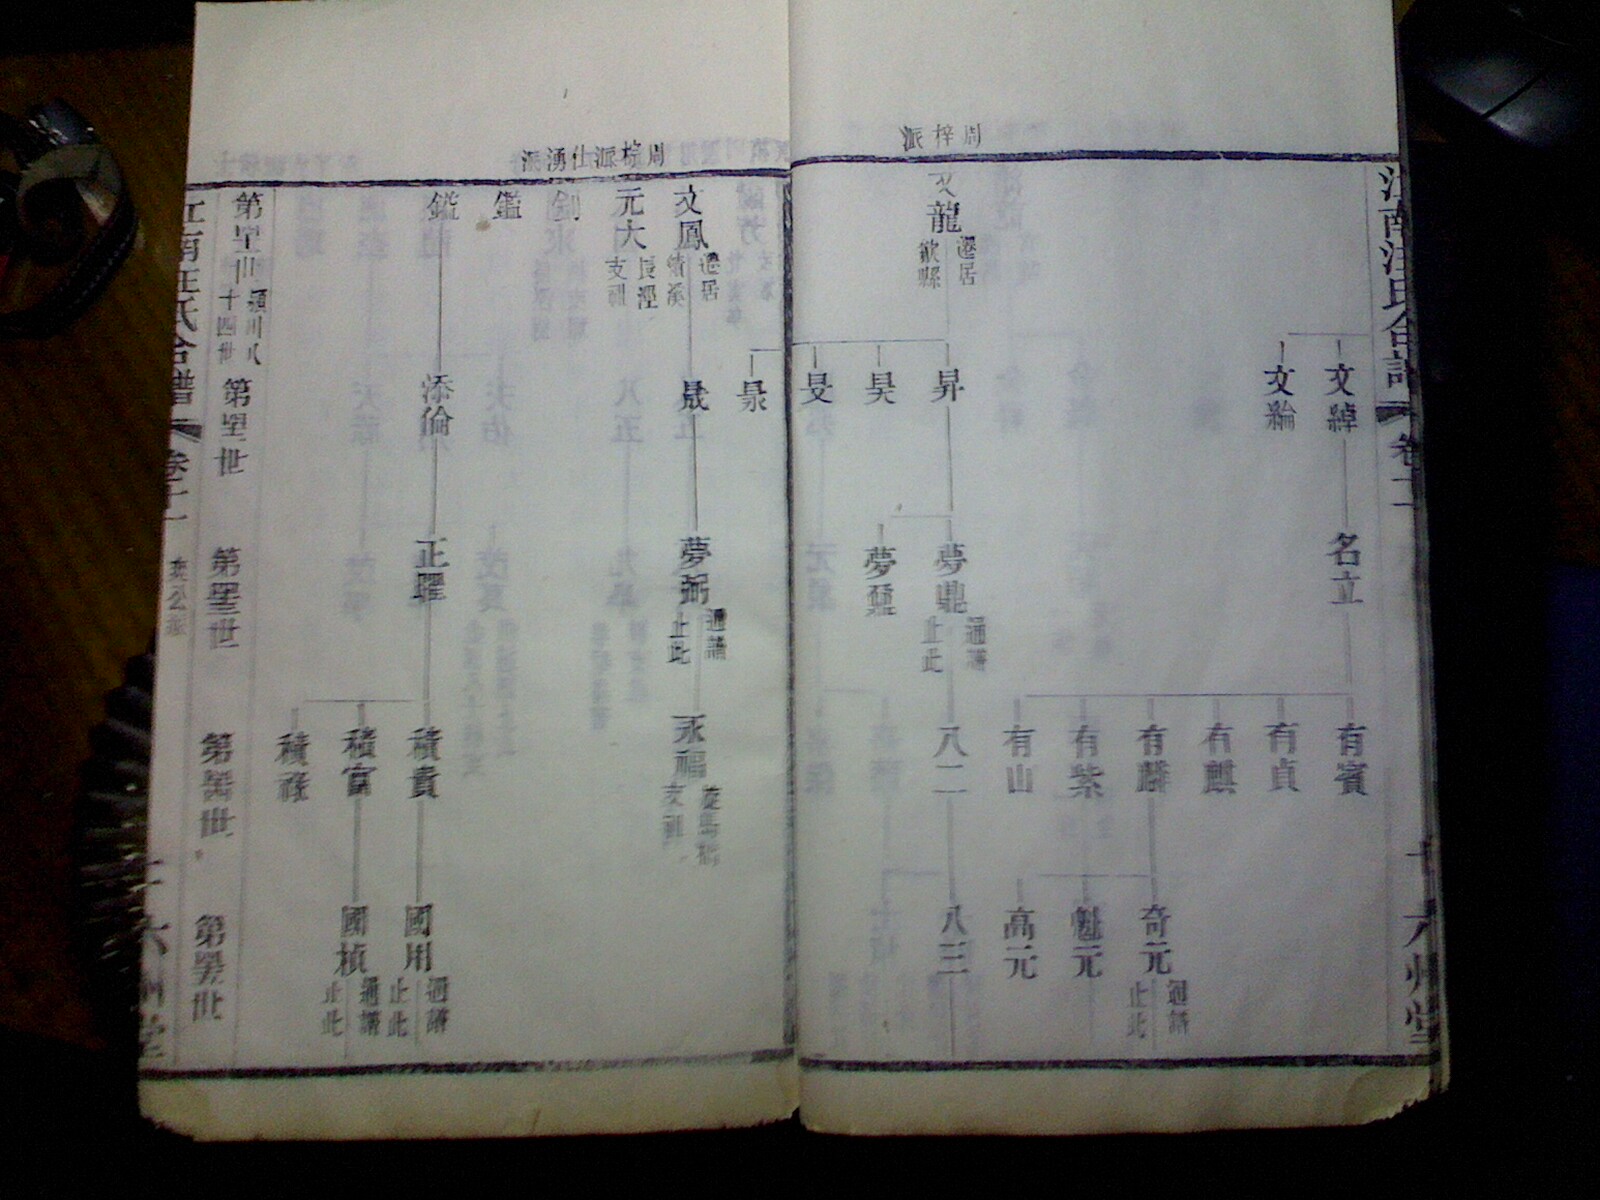 周梓派
江南汪氏合譜
卷二
六州堂
文綽
文綸
名立
有賓
有貞
有麒
有麟
有紫
有山
奇元 通譜止此
魁元
高元
文龍 遷居歙縣
昇
昊
旻
夢鼎 通譜止此
夢鼐
八二
八三
周梓派仕湧派
文鳳 遷居績溪
元大 長涇支祖
鑑
晟
夢弼 通譜止此
永福
支祖
添倫
正躍
積貴
積富
積祿
國用 通譜止此
國楨 通譜止此
第
世
潁川八十四世
第
世
第
世
第
世
第
世
江南汪氏合譜
卷二
爽公
六州堂